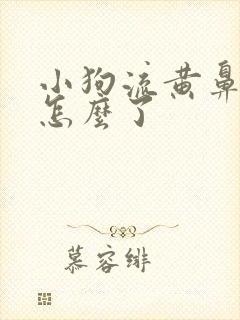 小狗流黄鼻
怎麼了
慕容绯